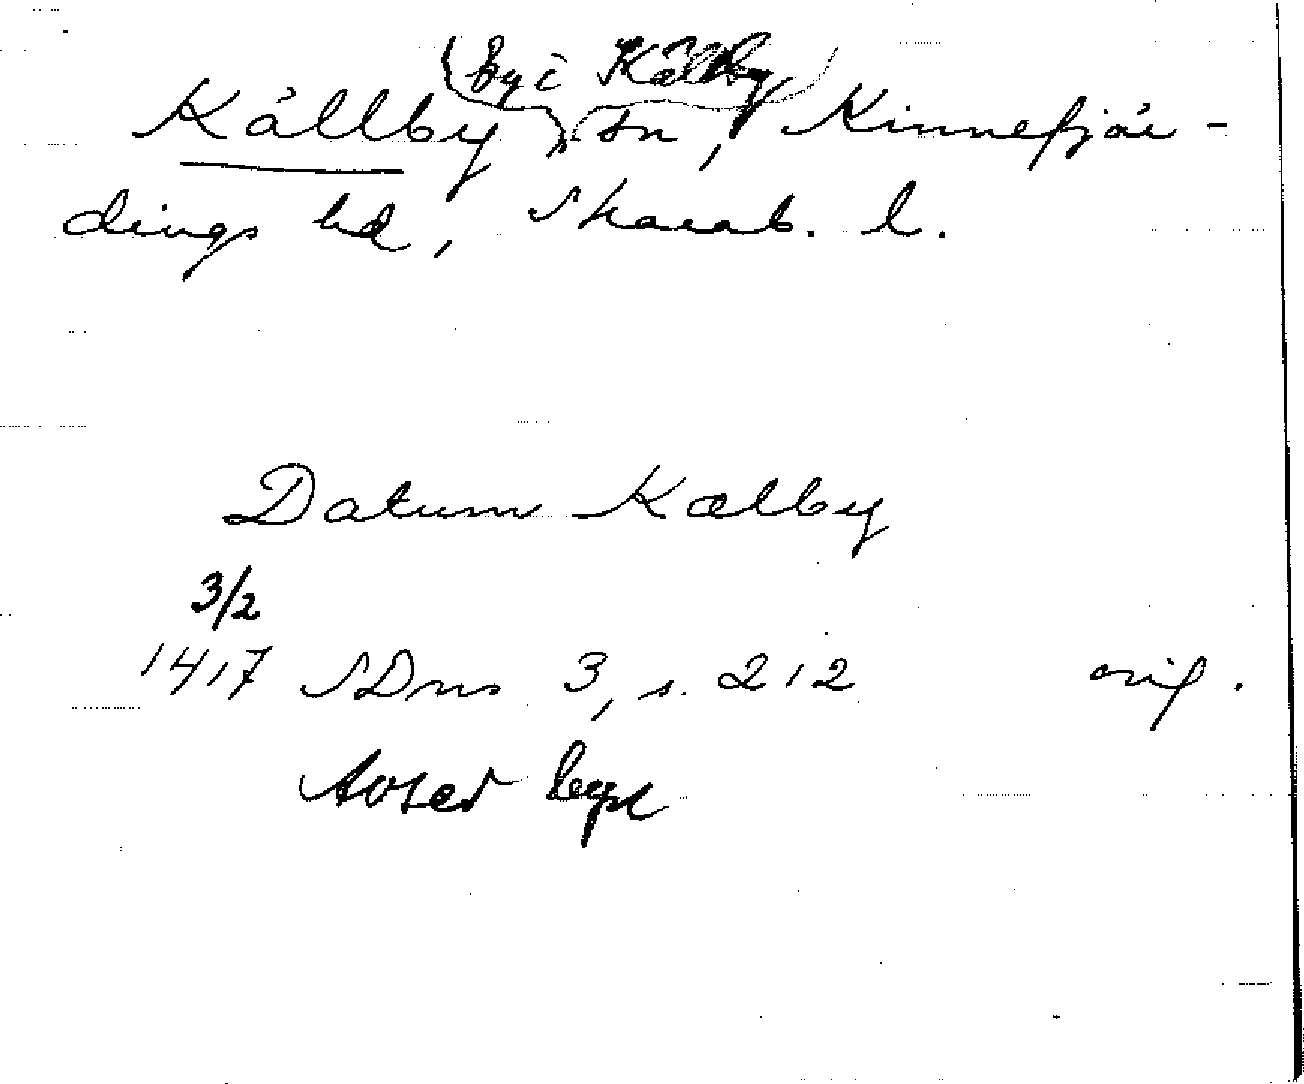 (by i Källby)
Källby sn, Kinnefjär-
dings hd, Skarab. l.
Datum Kælby
3/2
1417 SDns 3, s. 212 orig.
Avser byn